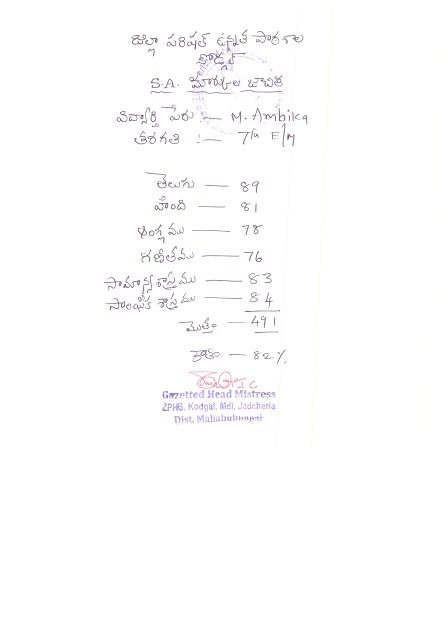 జిల్లా పరిషత్ ఉన్నత పాఠశాల
కోడ్గల్
S.A. మార్కుల జాబిత
విద్యార్థి పేరు :— M. Ambika
తరగతి :— 7th E/M
తెలుగు — 89
హింది — 81
ఆంగ్లము — 78
గణితము — 76
సామాన్య శాస్త్రము — 83
సాంఘిక శాస్త్రము — 84
మొత్తం — 491
శాతం — 82%
Gazetted Head Mistress
ZPHS. Kodgal, Mdl. Jadcherla
Dist. Mahabubnagar